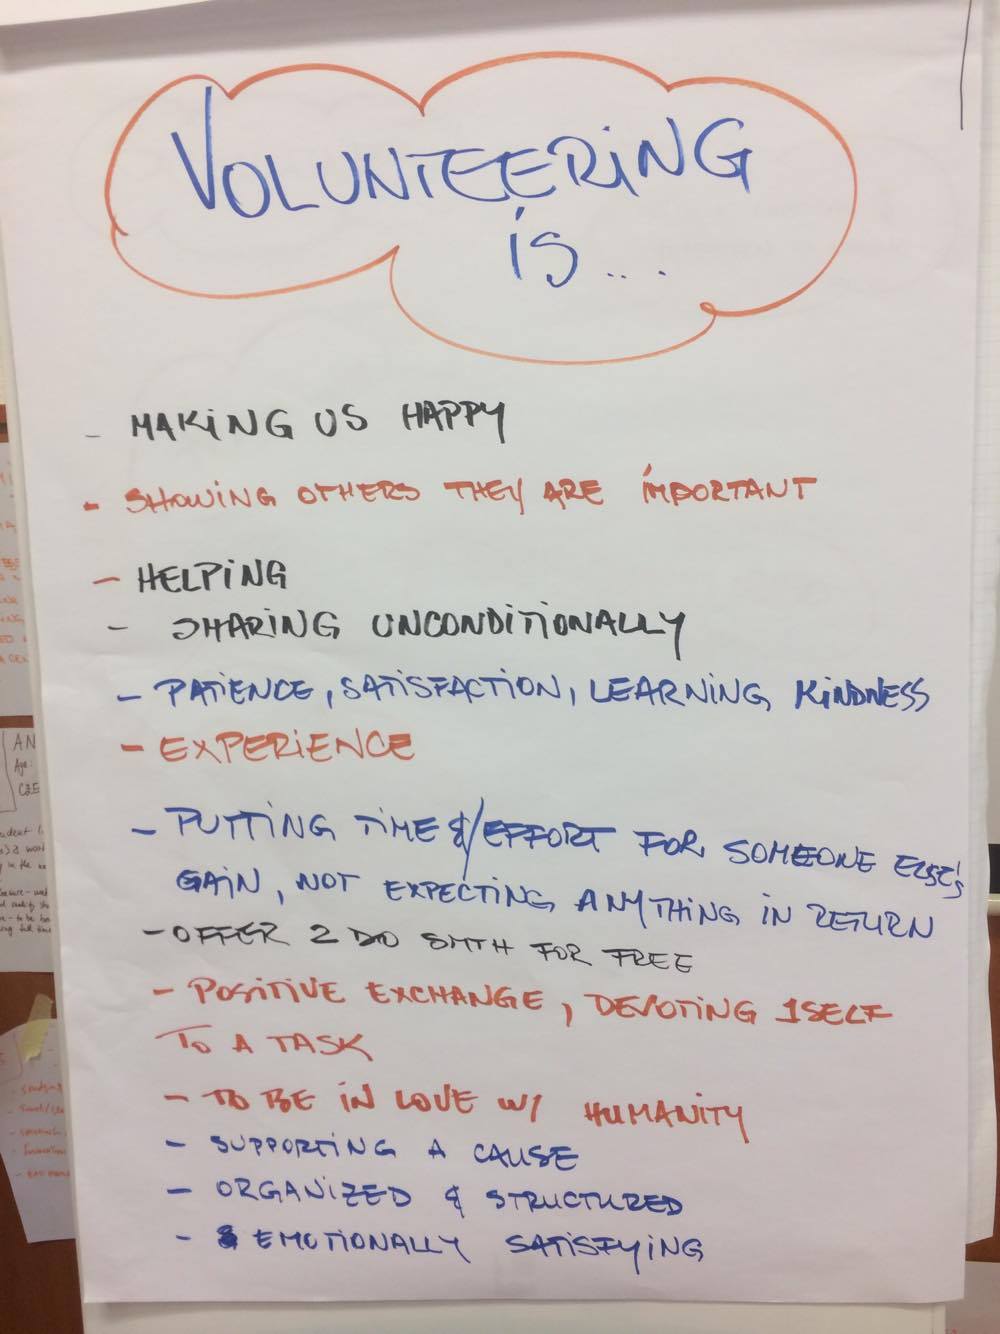 VOLUNTEERING
is ....
- MAKING US HAPPY
- SHOWING OTHERS THEY ARE IMPORTANT
- HELPING
- SHARING UNCONDITIONALLY
- PATIENCE, SATISFACTION, LEARNING, KINDNESS
- EXPERIENCE
- PUTTING TIME &/EFFORT FOR SOMEONE ELSE'S
GAIN, NOT EXPECTING ANYTHING IN RETURN
- OFFER 2 DO SMTH FOR FREE
- POSITIVE EXCHANGE, DEVOTING 1SELF
TO A TASK
- TO BE IN LOVE W/ HUMANITY
- SUPPORTING A CAUSE
- ORGANIZED & STRUCTURED
- EMOTIONALLY SATISFYING
AN
Age:
CZE